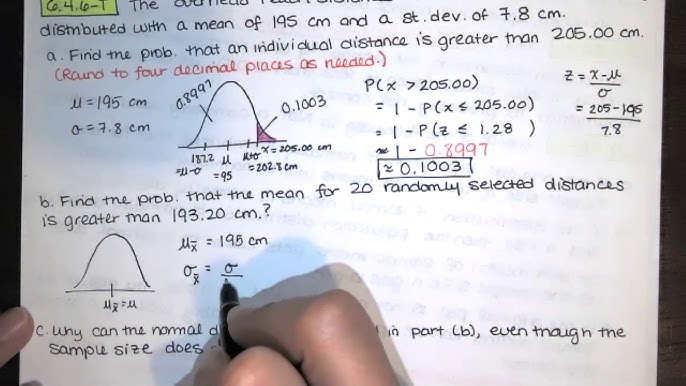 6.4.6-T The overhead reach distance
distributed with a mean of 195 cm and a st. dev. of 7.8 cm.
a. Find the prob. that an individual distance is greater than 205.00 cm.
(Round to four decimal places as needed.)
μ = 195 cm
σ = 7.8 cm
0.8997
0.1003
187.2 μ μ+σ x = 205.00 cm
= μ-σ = 95 = 202.8 cm
P(x > 205.00)
= 1 - P(x ≤ 205.00)
= 1 - P(z ≤ 1.28 )
≈ 1 - 0.8997
≈ 0.1003
z = x-μ/σ
= 205-195/7.8
b. Find the prob. that the mean for 20 randomly selected distances
is greater than 193.20 cm.?
μx̄ = μ
μx̄ = 195 cm
σx̄ = σ
c. Why can the normal d in part (b), even though the
sample size does